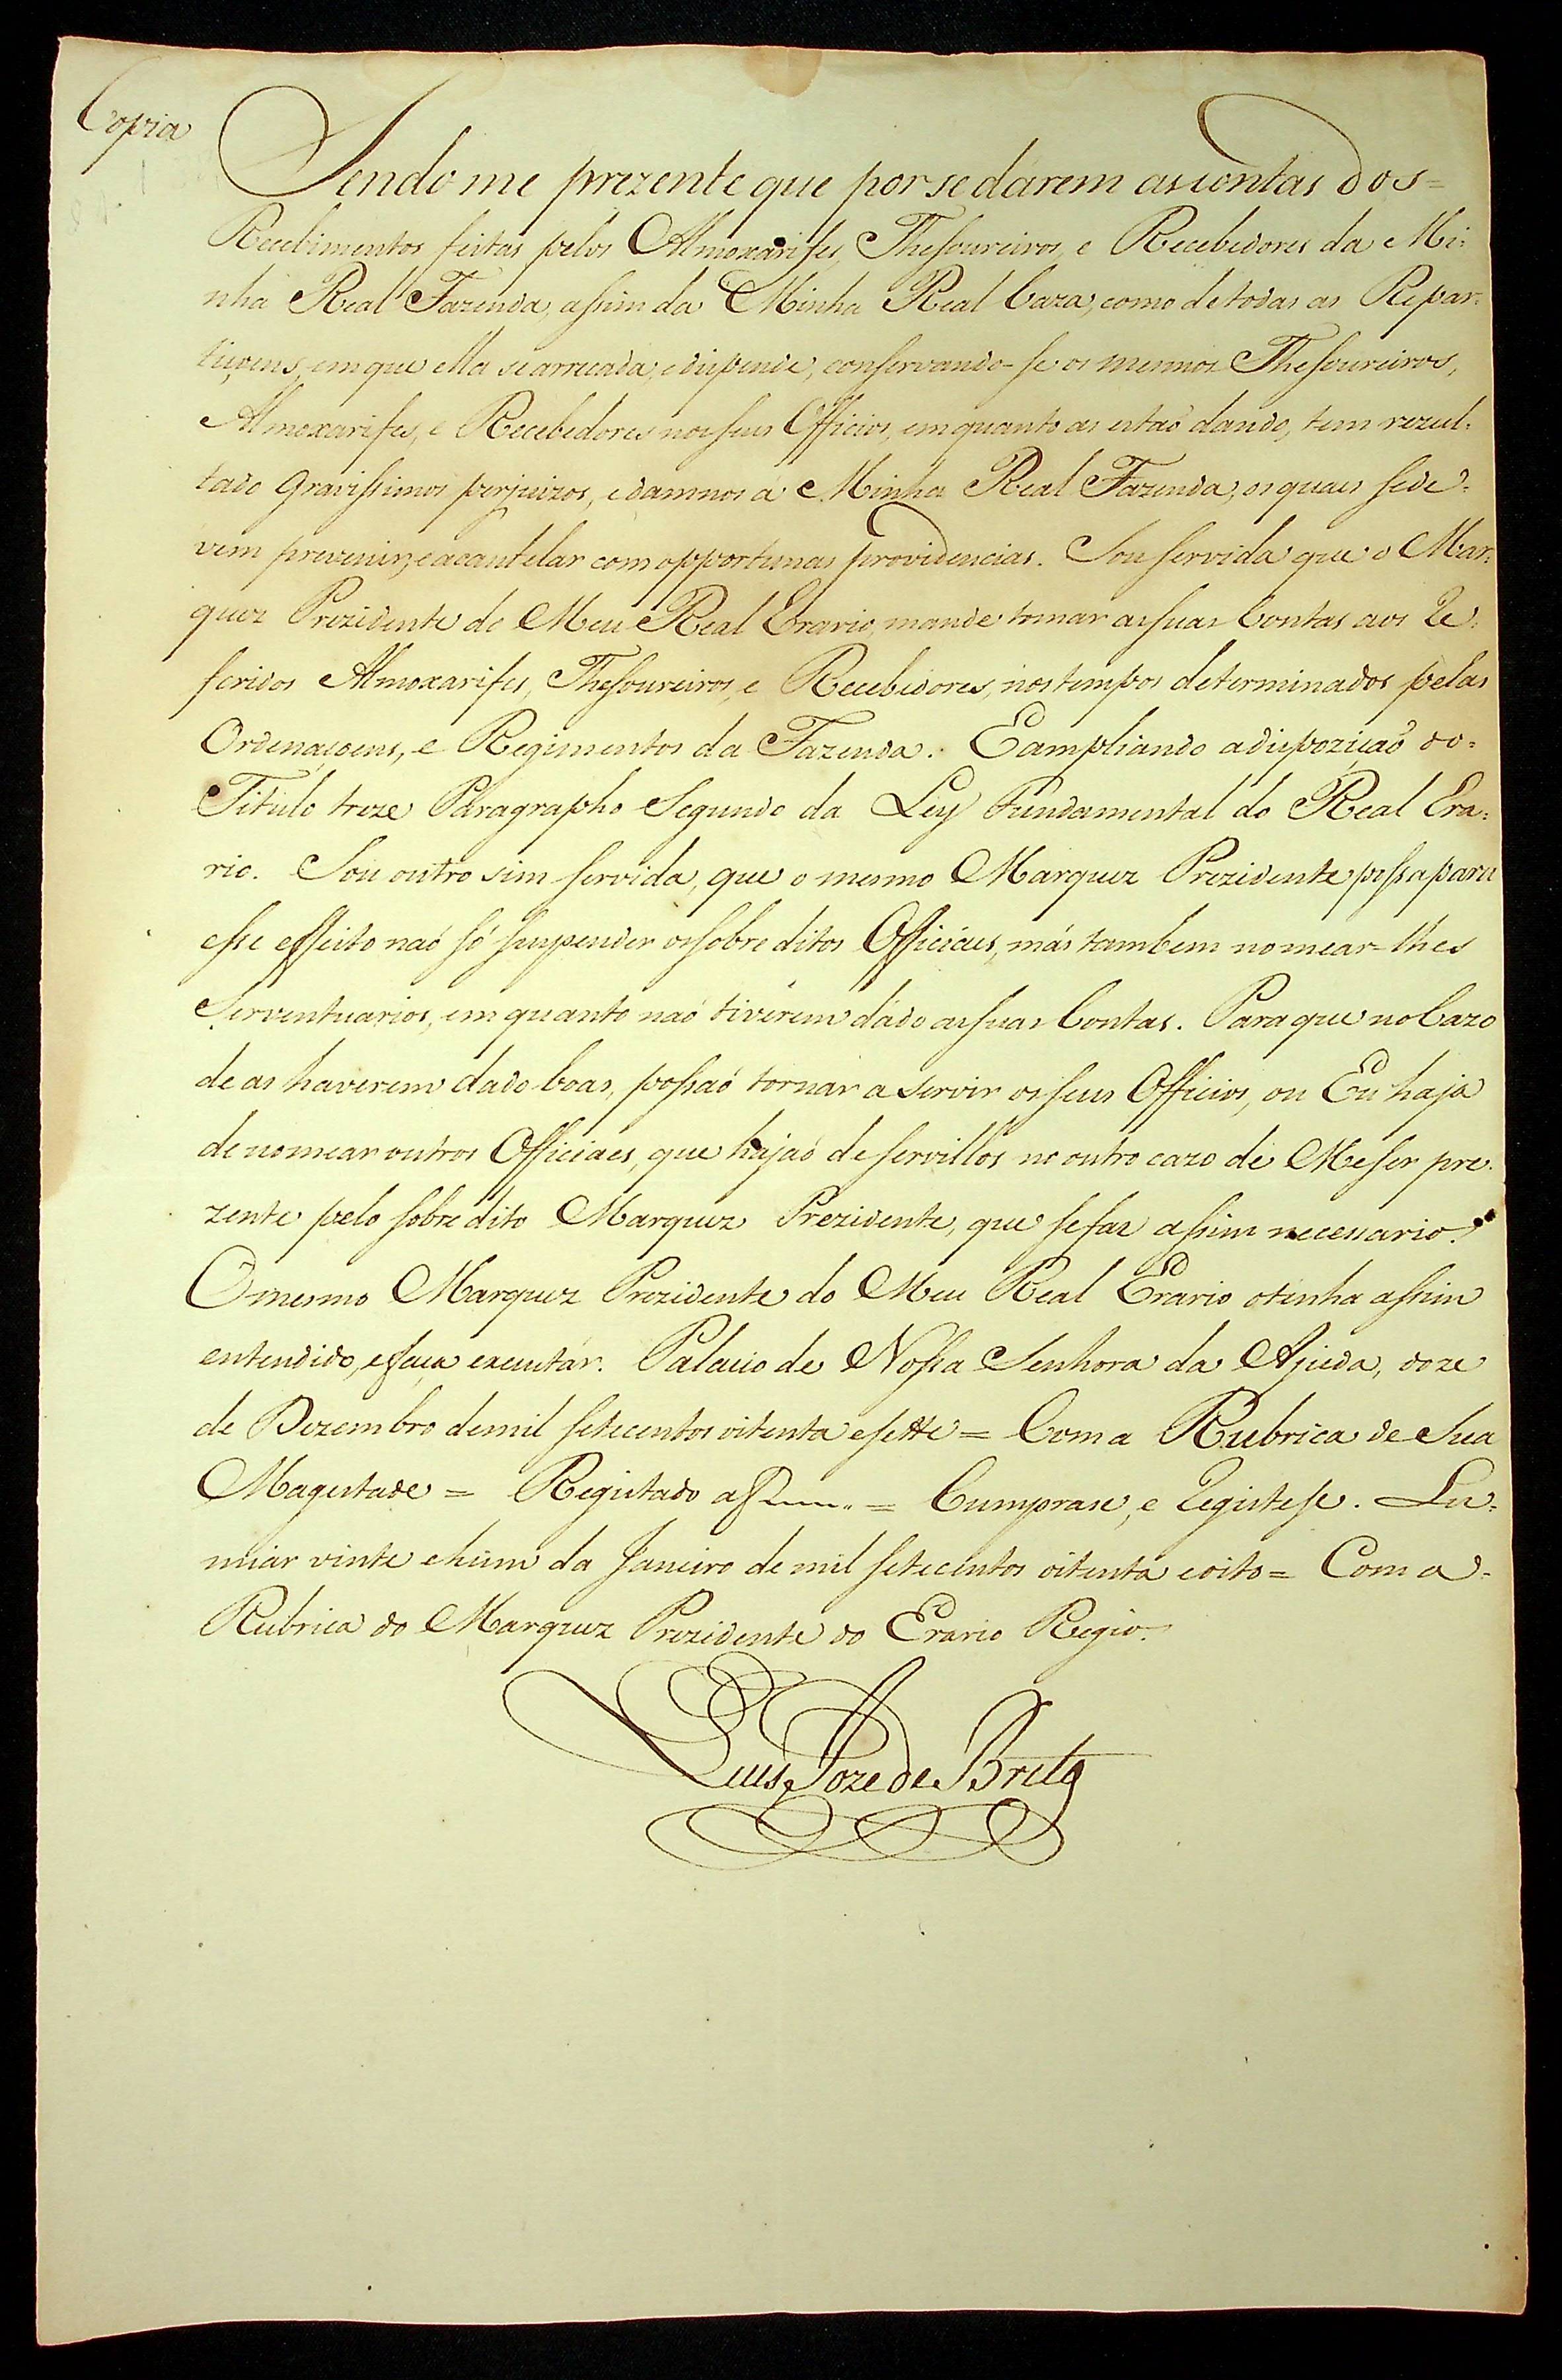 Copia
Sendo me prezente que por se dárem as contas dos=
Recebimentos feitas pelos Almoxarifes, Thesoureiros, e Recebedores da Mi=
nha Real Fazenda, assim da Minha Real Caza, como de todas as Repar=
tiçoens, em que ella se arrecada, e dispende, conservando-se os mesmos Thesoureiros,
Almoxarifes, e Recebedores nos seus Officios, em quanto as estaõ dando, tem rezul=
tado gravissimos perjuizos, e damnos á Minha Real Fazenda, os quaes se de=
vem prevenir, e acautelar com opportunas providencias. Sou servida que o Mar=
quez Prezidente do Meu Real Erario, mande tomar as suas Contas aos Re=
feridos Almoxarifes, Thesoureiros, e Recebedores, nos tempos determinados pelas
Ordenaçoens, e Regimentos da Fazenda. E ampliando a dispoziçaõ do=
Titulo treze Paragrapho Segundo da Ley Fundamental do Real Era=
rio. Sou outro sim servida, que o mesmo Marquez Prezidente possa para
esse effeito naõ só suspender os sobre ditos Officiáes, más tambem nomear-lhes
Serventuarios, em quanto naõ tivérem dádo as suas Contas. Para que no Cazo
de as haverem dado boas, possaõ tornar a servir os seus Officios, ou Eu haja
de nomear outros Officiaes, que hajaõ de servillos no outro cazo de Me ser pre=
zente pelo sobre dito Marquez Prezidente, que se faz assim necessario.
O mesmo Marquez Prezidente do Meu Real Erario o tenha assim
entendido, e faça executár. Palacio de Nossa Senhora da Ajuda, doze
de Dezembro de mil setecentos oitenta e sette = Com a Rubrica de Sua
Magestade = Registado a f = Cumprase, e Registese. Lu=
miar vinte e hum da Janeiro de mil setecentos oitenta e oito = Com a=
Rubrica do Marquez Prezidente do Erario Regio.
Luis Joze de Brito